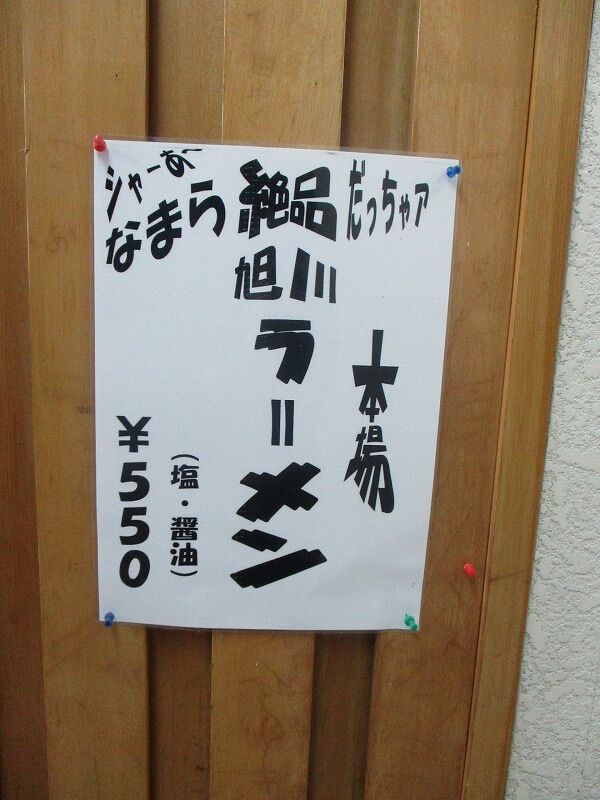 シャーあ~
なまら
絶品
だっちゃァ
旭川
ラーメン
本場
(塩・醤油)
¥550